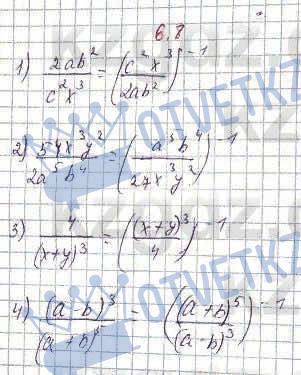 6.8
1) 2ab²/c²x³ = (c²x³/2ab²)⁻¹
2) 54x³y²/2a⁵b⁴ = (a⁵b⁴/27x³y²)⁻¹
3) 4/(x+y)³ = ((x+y)³/4)⁻¹
4) (a-b)³/(a+b)⁵ = ((a+b)⁵/(a-b)³)⁻¹
OTVETKZ
OTVETKZ
OTVETKZ